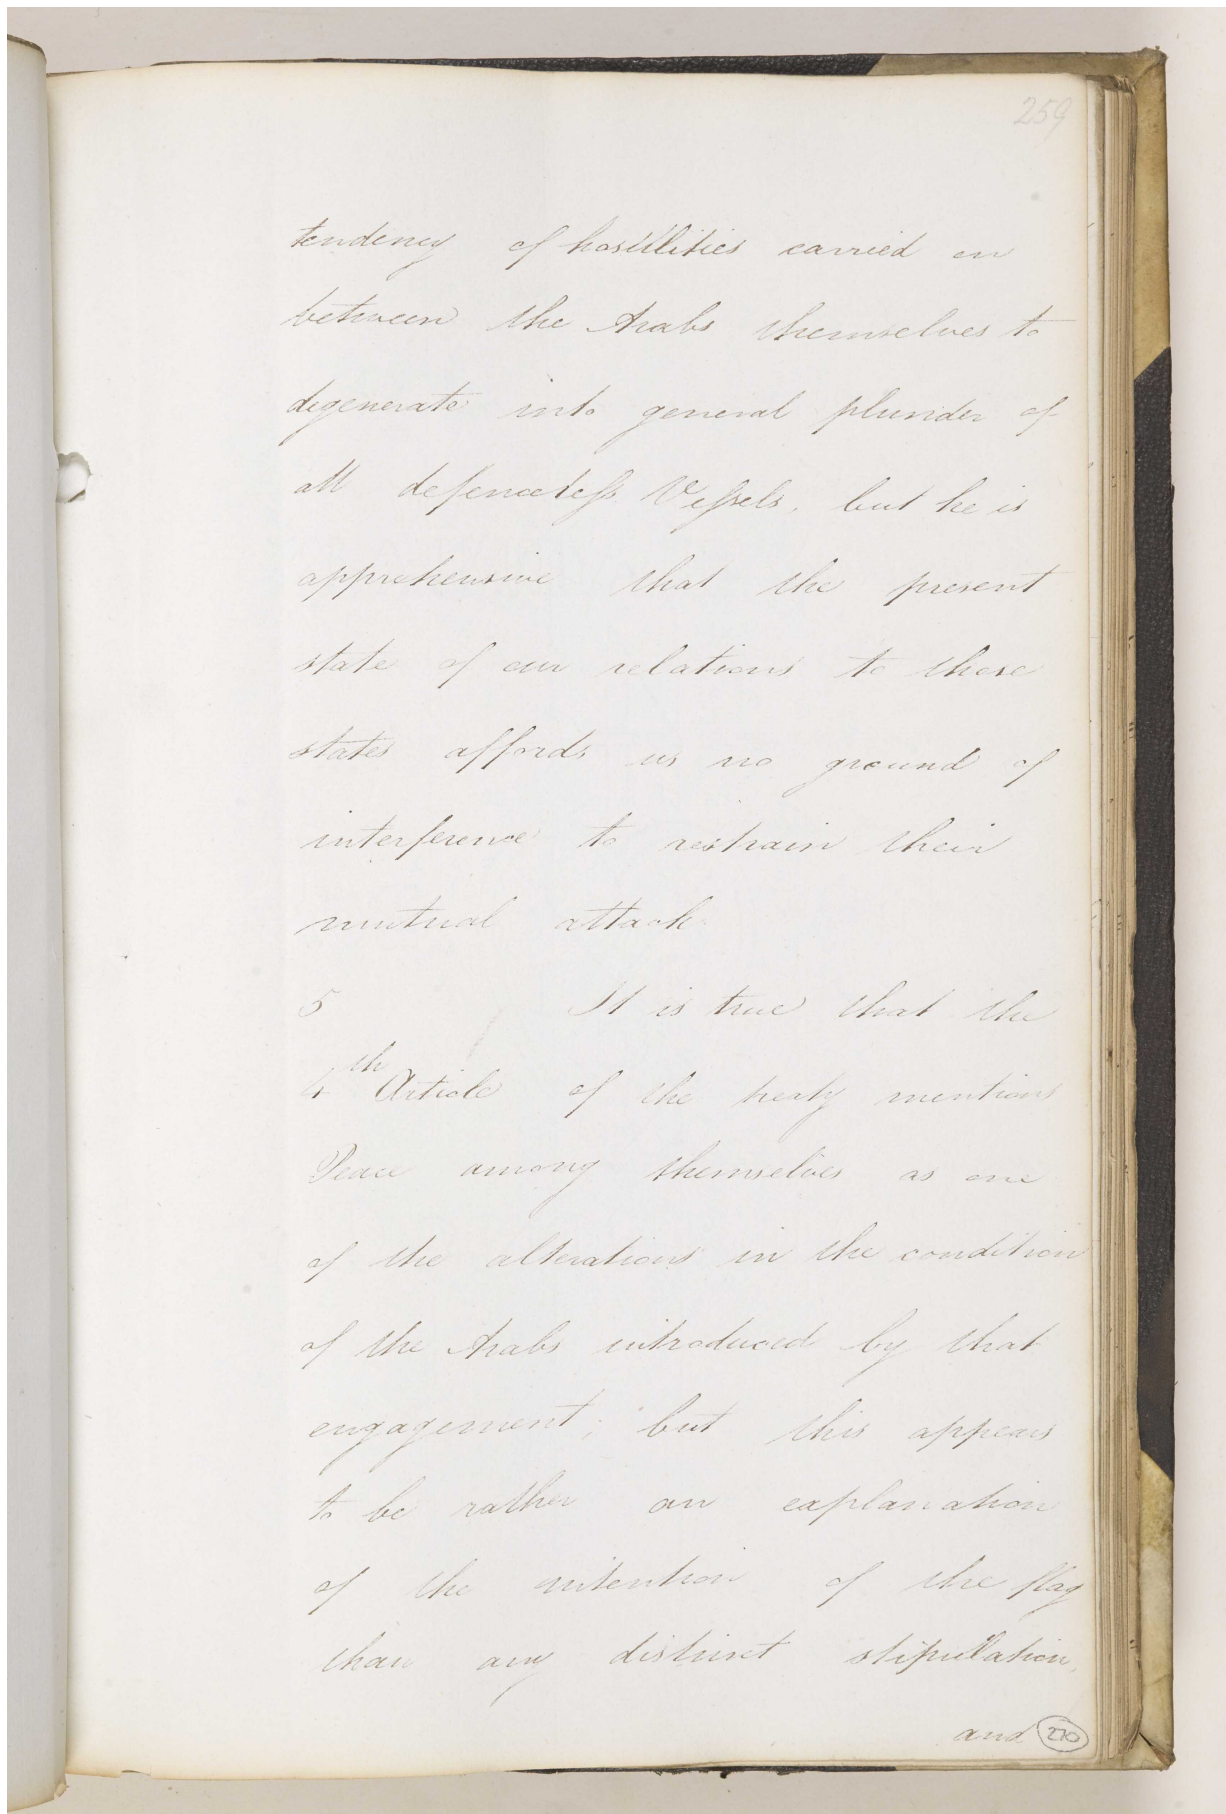 259
tendency of hostilities carried on
between the Arabs themselves to
degenerate into general plunder of
all defenceless Vessels, but he is
apprehensive that the present
state of our relations to those
states affords us no ground of
interference to restrain their
mutual attack.
5 It is true that the
4th Article of the treaty mentions
Peace among themselves as one
of the alterations in the condition
of the Arabs introduced by that
engagement; but this appears
to be rather an explanation
of the intention of the flag
than any distinct stipulation,
and
270